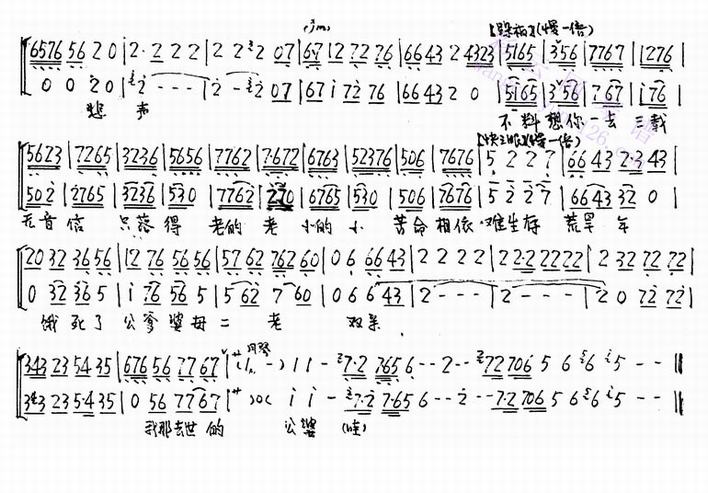 6576 56 20 | 2· 2 2 2 | 2 2 2 07 | 67 12 72 76 | 66 43 2 4323 | 5165 | 3·56 | 7767 | 1276 |
0 0 20 | 2 - - - | 2 - 20 07 | 67 1 72 76 | 66 43 2 0 | 5165 | 3·56 | 767 | 176 |
悲 声 不料想你一去三载
5623 | 7265 | 3236 | 5656 | 7762 | 7·672 | 6763 | 52376 | 506 | 7676 | 5 2 2 7 | 66 43 2·3 43 |
502 | 2765 | 3236 | 530 | 7762 | 220 | 6765 | 530 | 506 | 7676 | 5 2 2 7 | 66 43 32 0 |
无音信 只落得 老的老 小的小 苦命相依难生存 荒旱年
20 32 36 56 | 12 76 56 56 | 57 62 762 60 | 0 6 66 43 | 2 2 2 2 | 22·2 2222 | 2 32 72 72 |
0 32 36 5 | 1 76 56 5 | 5 62 7 60 | 0 6 6 43 | 2 - - - | 2 - - - | 2 0 72 72 |
饿死了公爹婆母二老 双亲
343 23 54 35 | 676 56 77 67 | 1 1 - 7·2 765 6 - - 2 - - 72 706 5 6 6 5 - - ||
343 23 54 35 | 0 56 77 67 | 1 1 - 7·2 7·65 6 - - 2 - - 7·2 706 5 6 6 5 - - ||
我那去世的 公婆 (哇)